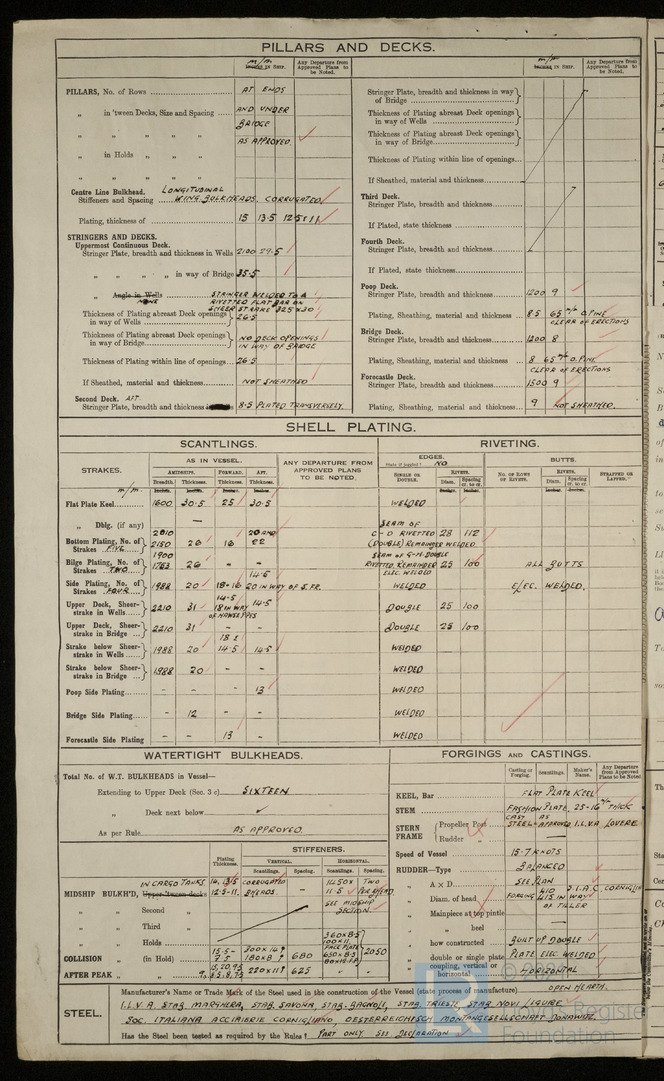 PILLARS AND DECKS.
m/m
Inches in Ship.
Any Departure from Approved Plans to be Noted.
PILLARS, No. of Rows AT ENDS
„ in 'tween Decks, Size and Spacing AND UNDER
BRIDGE
„ „ „ „ AS APPROVED
„ in Holds „ „
„ „ „ „
Centre Line Bulkhead. LONGITUDINAL
Stiffeners and Spacing WING BULKHEADS. CORRUGATED
Plating, thickness of 15 13·5 12·5 & 11
STRINGERS AND DECKS.
Uppermost Continuous Deck.
Stringer Plate, breadth and thickness in Wells 2100 29·5
„ „ „ „ in way of Bridge 35·5
„ Angle in Wells NONE STRINGER WELDED TO A
RIVETTED FLAT BAR ON
SHEER STRAKE 325 x 30
Thickness of Plating abreast Deck openings in way of Wells 26·5
Thickness of Plating abreast Deck openings in way of Bridge NO DECK OPENINGS
IN WAY OF BRIDGE
Thickness of Plating within line of openings 26·5
If Sheathed, material and thickness NOT SHEATHED
Second Deck. AFT.
Stringer Plate, breadth and thickness 8·5 PLATED TRANSVERSELY.
m/m
Inches in Ship.
Any Departure from Approved Plans to be Noted.
Stringer Plate, breadth and thickness in way of Bridge
Thickness of Plating abreast Deck openings in way of Wells
Thickness of Plating abreast Deck openings in way of Bridge
Thickness of Plating within line of openings
If Sheathed, material and thickness
Third Deck.
Stringer Plate, breadth and thickness
If Plated, state thickness
Fourth Deck.
Stringer Plate, breadth and thickness
If Plated, state thickness
Poop Deck.
Stringer Plate, breadth and thickness 1200 9
Plating, Sheathing, material and thickness 8·5 65 m/m O. PINE
CLEAR OF ERECTIONS
Bridge Deck.
Stringer Plate, breadth and thickness 1200 8
Plating, Sheathing, material and thickness 8 65 m/m O. PINE
CLEAR OF ERECTIONS
Forecastle Deck.
Stringer Plate, breadth and thickness 1500 9
Plating, Sheathing, material and thickness 9 NOT SHEATHED.
SHELL PLATING.
SCANTLINGS.
RIVETING.
STRAKES.
AS IN VESSEL.
AMIDSHIPS. FORWARD. AFT.
Breadth. Thickness. Thickness. Thickness.
ANY DEPARTURE FROM APPROVED PLANS TO BE NOTED.
EDGES.
State if joggled? NO
SINGLE OR DOUBLE.
RIVETS.
Diam. Spacing cr. to cr.
BUTTS.
No. of Rows of Rivets.
RIVETS.
Diam. Spacing cr. to cr.
STRAPPED OR LAPPED.
m/m
Flat Plate Keel 1600 30·5 25 30·5 WELDED
„ Dblg. (if any) —
SEAM OF
Bottom Plating, No. of Strakes FIVE 2010 2150 26 16 20 AND 22 C – D RIVETTED 28 112
(DOUBLE) REMAINDER WELDED
Bilge Plating, No. of Strakes TWO 1900 1763 26 – – SEAM OF G-H DOUBLE
RIVETTED, REMAINDER 25 100 ALL BUTTS
ELEC WELDED
Side Plating, No. of Strakes FOUR 1988 20 18-16 14·5 20 IN WAY OF S. FR. WELDED ELEC. WELDED.
Upper Deck, Sheerstrake in Wells 2210 31 14·5 18 IN WAY OF HAWSE PIPES 14·5 DOUBLE 25 100
Upper Deck, Sheerstrake in Bridge 2210 31 – – DOUBLE 25 100
Strake below Sheerstrake in Wells 1988 20 18 & 14·5 14·5 WELDED
Strake below Sheerstrake in Bridge 1988 20 – – WELDED
Poop Side Plating – – – 13 WELDED
Bridge Side Plating – 12 – – WELDED
Forecastle Side Plating – – 13 – WELDED
WATERTIGHT BULKHEADS.
Total No. of W.T. BULKHEADS in Vessel—
Extending to Upper Deck (Sec. 3 c) SIXTEEN
„ Deck next below
As per Rule AS APPROVED
Plating Thickness.
STIFFENERS.
VERTICAL.
HORIZONTAL.
Scantlings. Spacing. Scantlings. Spacing.
MIDSHIP BULKH'D, IN CARGO TANKS Upper 'tween decks 12·5-11 CORRUGATED BHEADS. — 1450 x 11·5 TWO
„ „ Second „ SEE MIDSHIP SECTION
„ „ Third „
„ „ Holds 360 x 8·5
100 x 11
FACE PLATE
COLLISION „ (in Hold) 15·5- 7·5 680 2050
AFTER PEAK „ „ 220 x 11 625 „ „
FORGINGS AND CASTINGS.
Casting or Forging. Scantlings. Maker's Name. Any Departure from Approved Plans to be Noted.
KEEL, Bar FLAT PLATE KEEL
STEM FASHION PLATE 25-16 m/m THICK
STERN FRAME
Propeller Post CAST STEEL AS APPROVED I.L.V.A LOVERE
Rudder „ —
Speed of Vessel 15·7 KNOTS
RUDDER—Type BALANCED
„ A x D SEE PLAN
„ Diam. of head FORGING 410 415 IN WAY OF TILLER S.I.A.C. CORNIGLIANO
„ Mainpiece at top pintle
„ „ heel
„ how constructed BUILT OF DOUBLE
„ double or single plate PLATE ELEC WELDED
„ coupling, vertical or horizontal HORIZONTAL
STEEL.
Manufacturer's Name or Trade Mark of the Steel used in the construction of the Vessel (state process of manufacture) OPEN HEARTH.
I.L.V.A STAB. MARGHERA, STAB. SAVONA, STAB. BAGNOLI, STAB. TRIESTE, STAB. NOVI LIGURE
SOC. ITALIANA ACCIAIERIE CORNIGLIANO, OESTERREICHISCH MONTANGESELLSCHAFT DONAWITZ.
Has the Steel been tested as required by the Rules? PART ONLY SEE DECLARATION